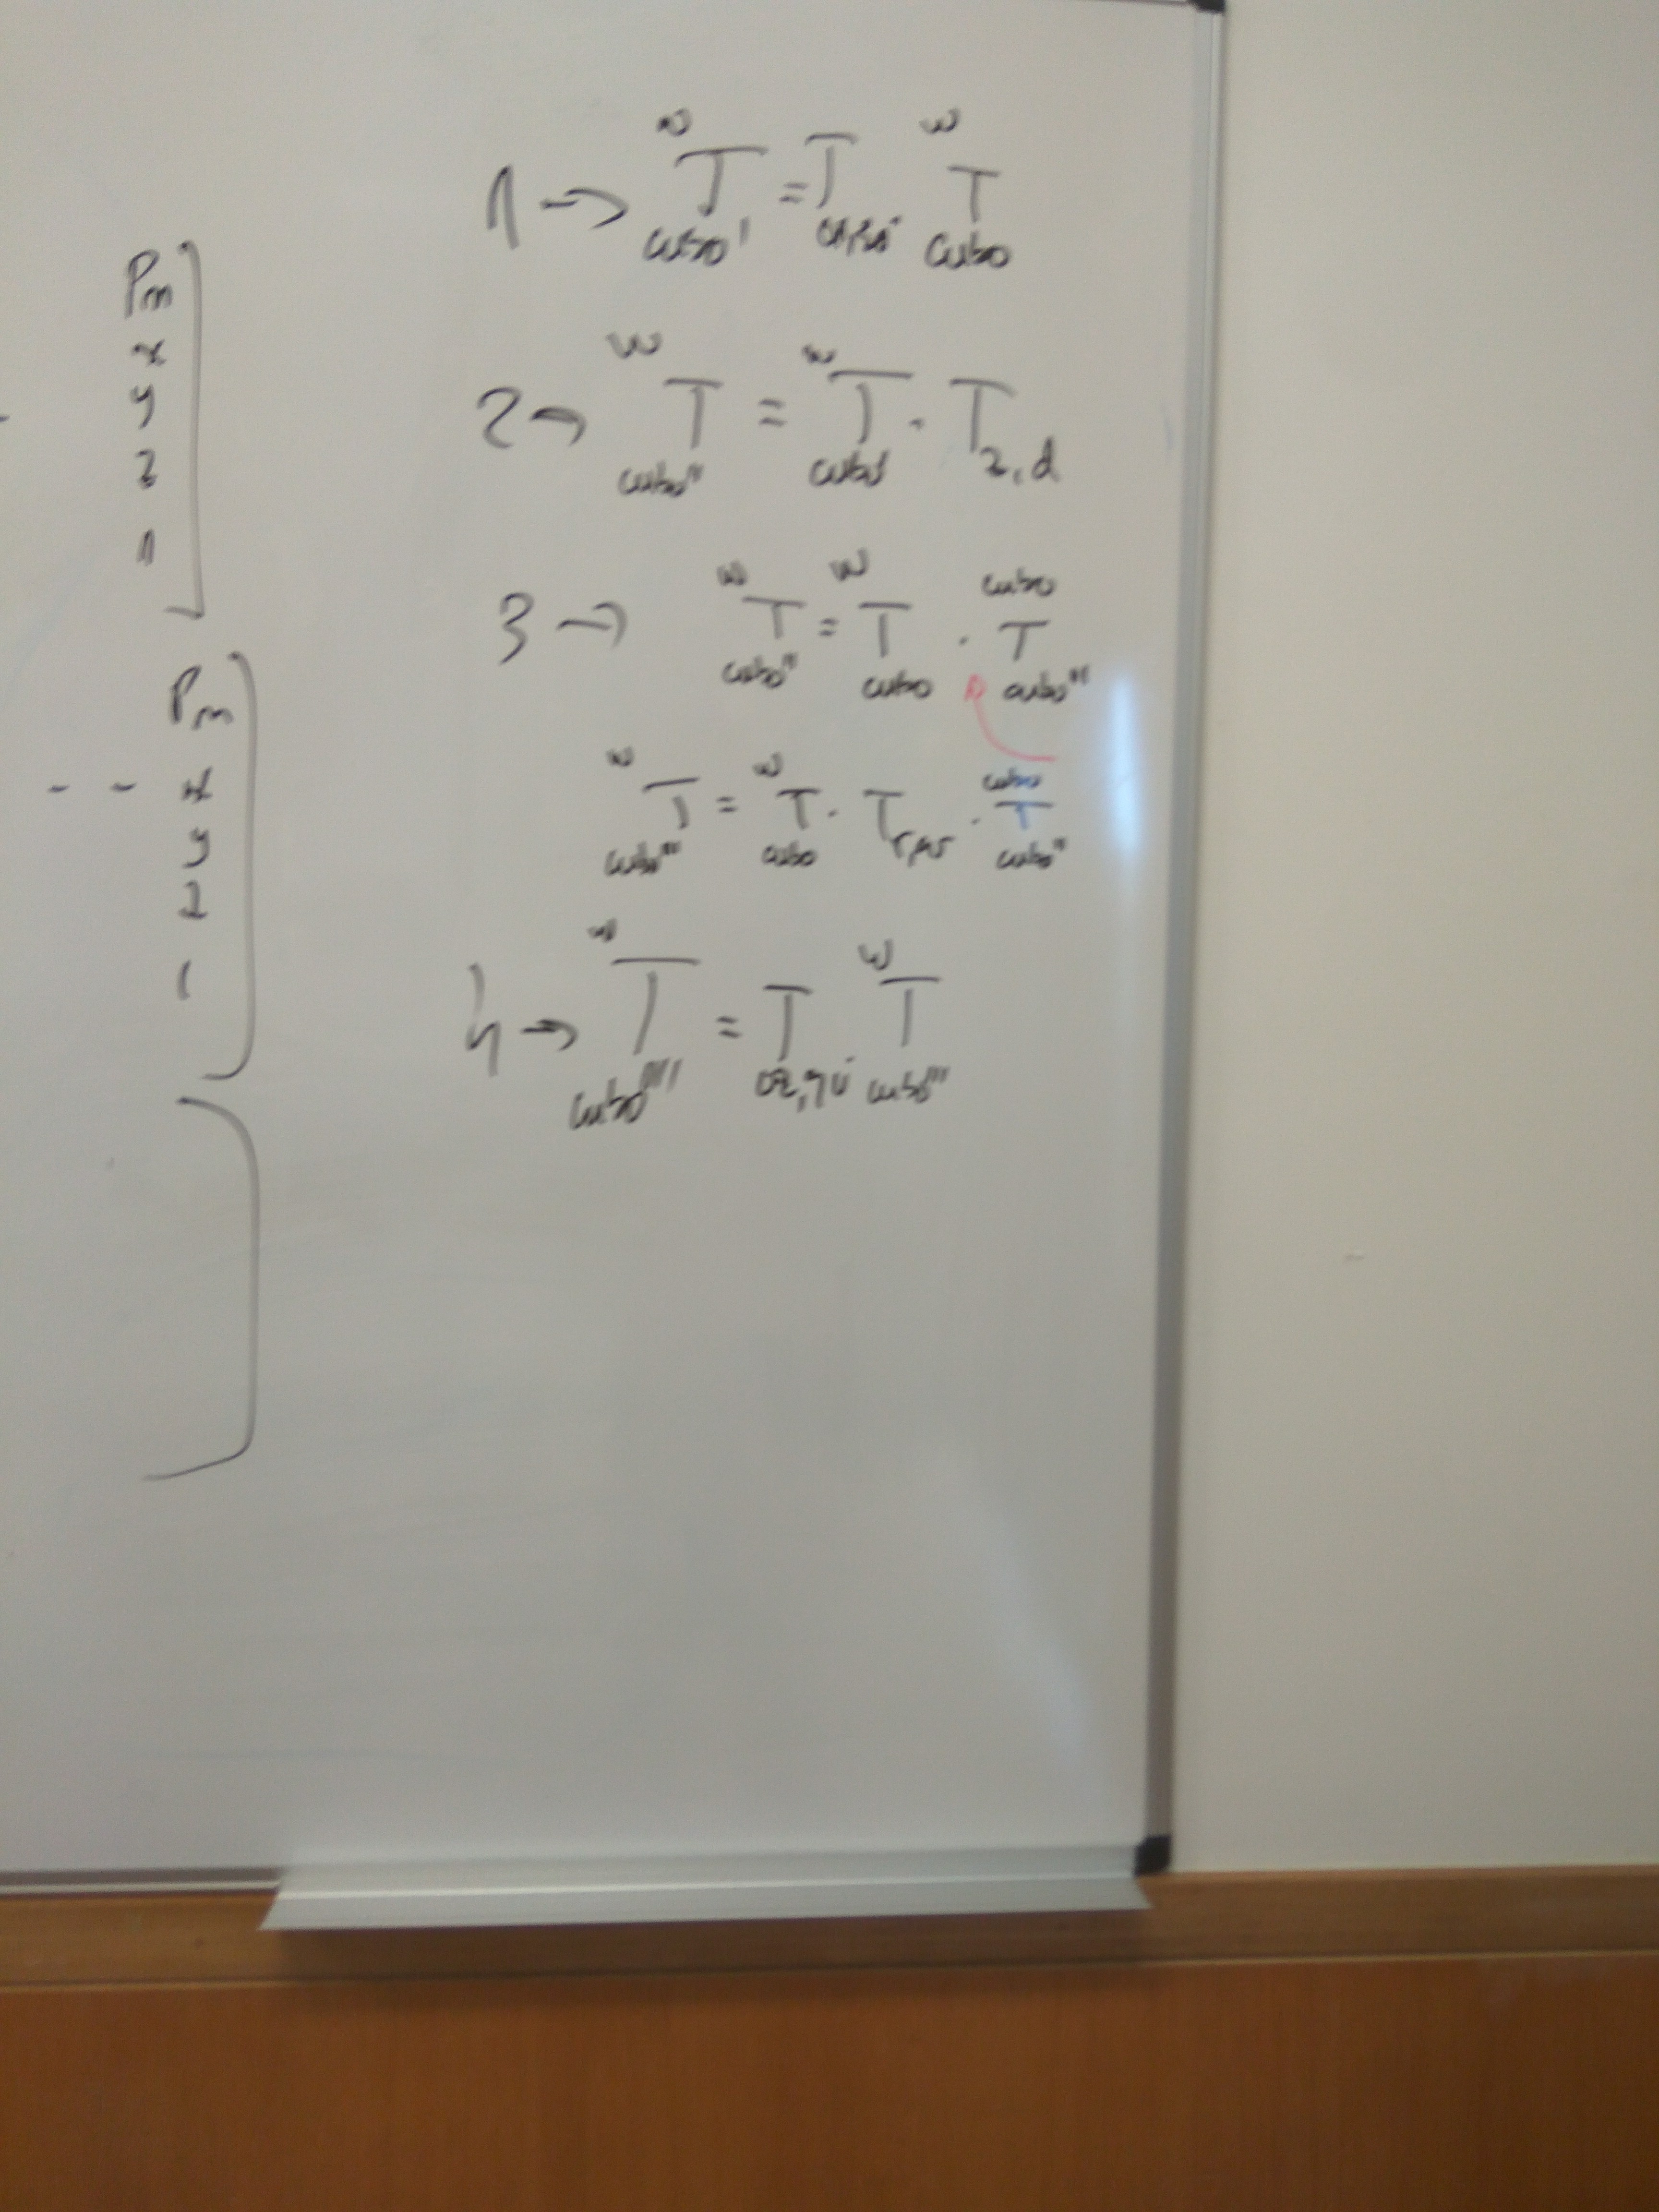 Pm
x
y
z
1
Pm
x
y
z
1
1 → W T cubo' = T W T cubo
2 → W T cubo'' = W T cubo' · T z, d
3 → W T cubo'' = W T cubo · cubo T cubo'''
W T cubo''' = W T cubo · T rpy · cubo T cubo''
4 → W T cubo'''' = T W T cubo'''